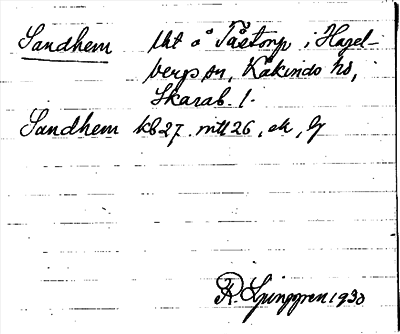 Sandhem lht å Tåstorp i Hagel-
bergs sn, Kåkinds hd,
Skarab. l.
Sandhem kb 27. mtl 26, ek, lj
R. Ljunggren 1930